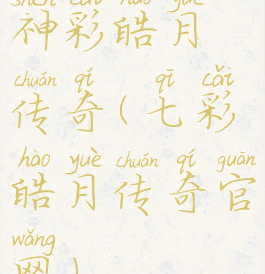 shén cǎi hào yuè
神彩皓月
chuán qí qī cǎi
传奇(七彩
hào yuè chuán qí guān
皓月传奇官
wǎng
网)